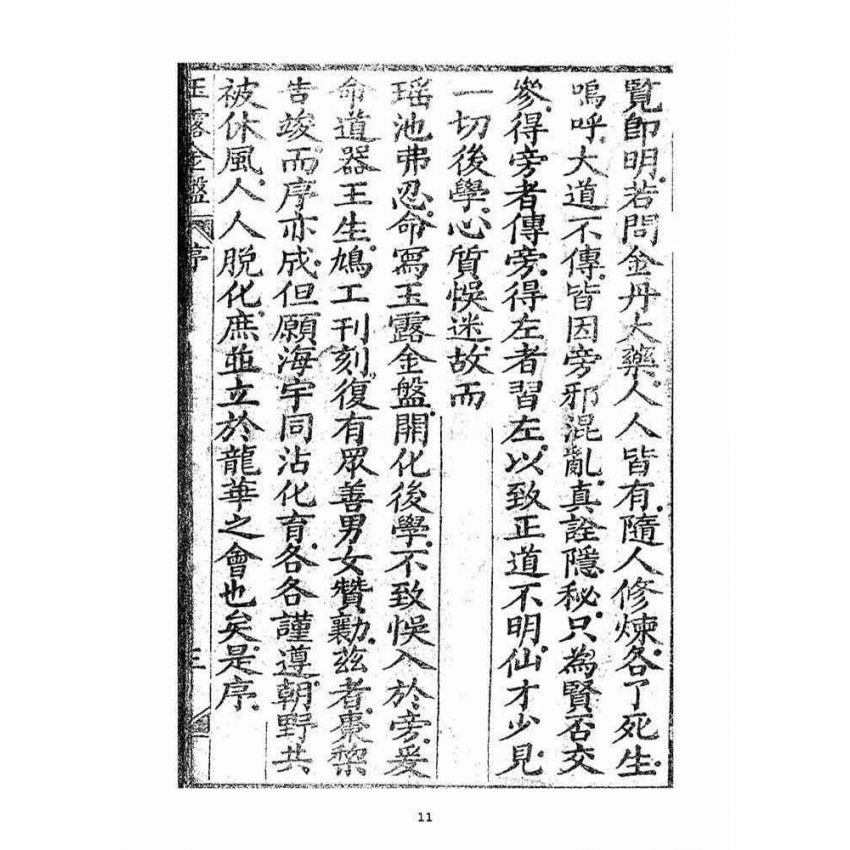 覧即明若問金丹大藥人人皆有隨人修煉各了死生
嗚呼大道不傳皆因旁邪混亂真詮隱秘只為賢否交
參得旁者傳旁得左者習左以致正道不明仙才少見
一切後學心質悞迷故而
瑶池弗忍命寫玉露金盤開化後學不致悞入於旁爰
命道器王生鳩工刊刻復有眾善男女贊勷茲者棗黎
告竣而序亦成但願海宇同沾化育各各謹遵朝野共
被休風人人脫化庶並立於龍華之會也矣是序
玉露金盤 序 三
11